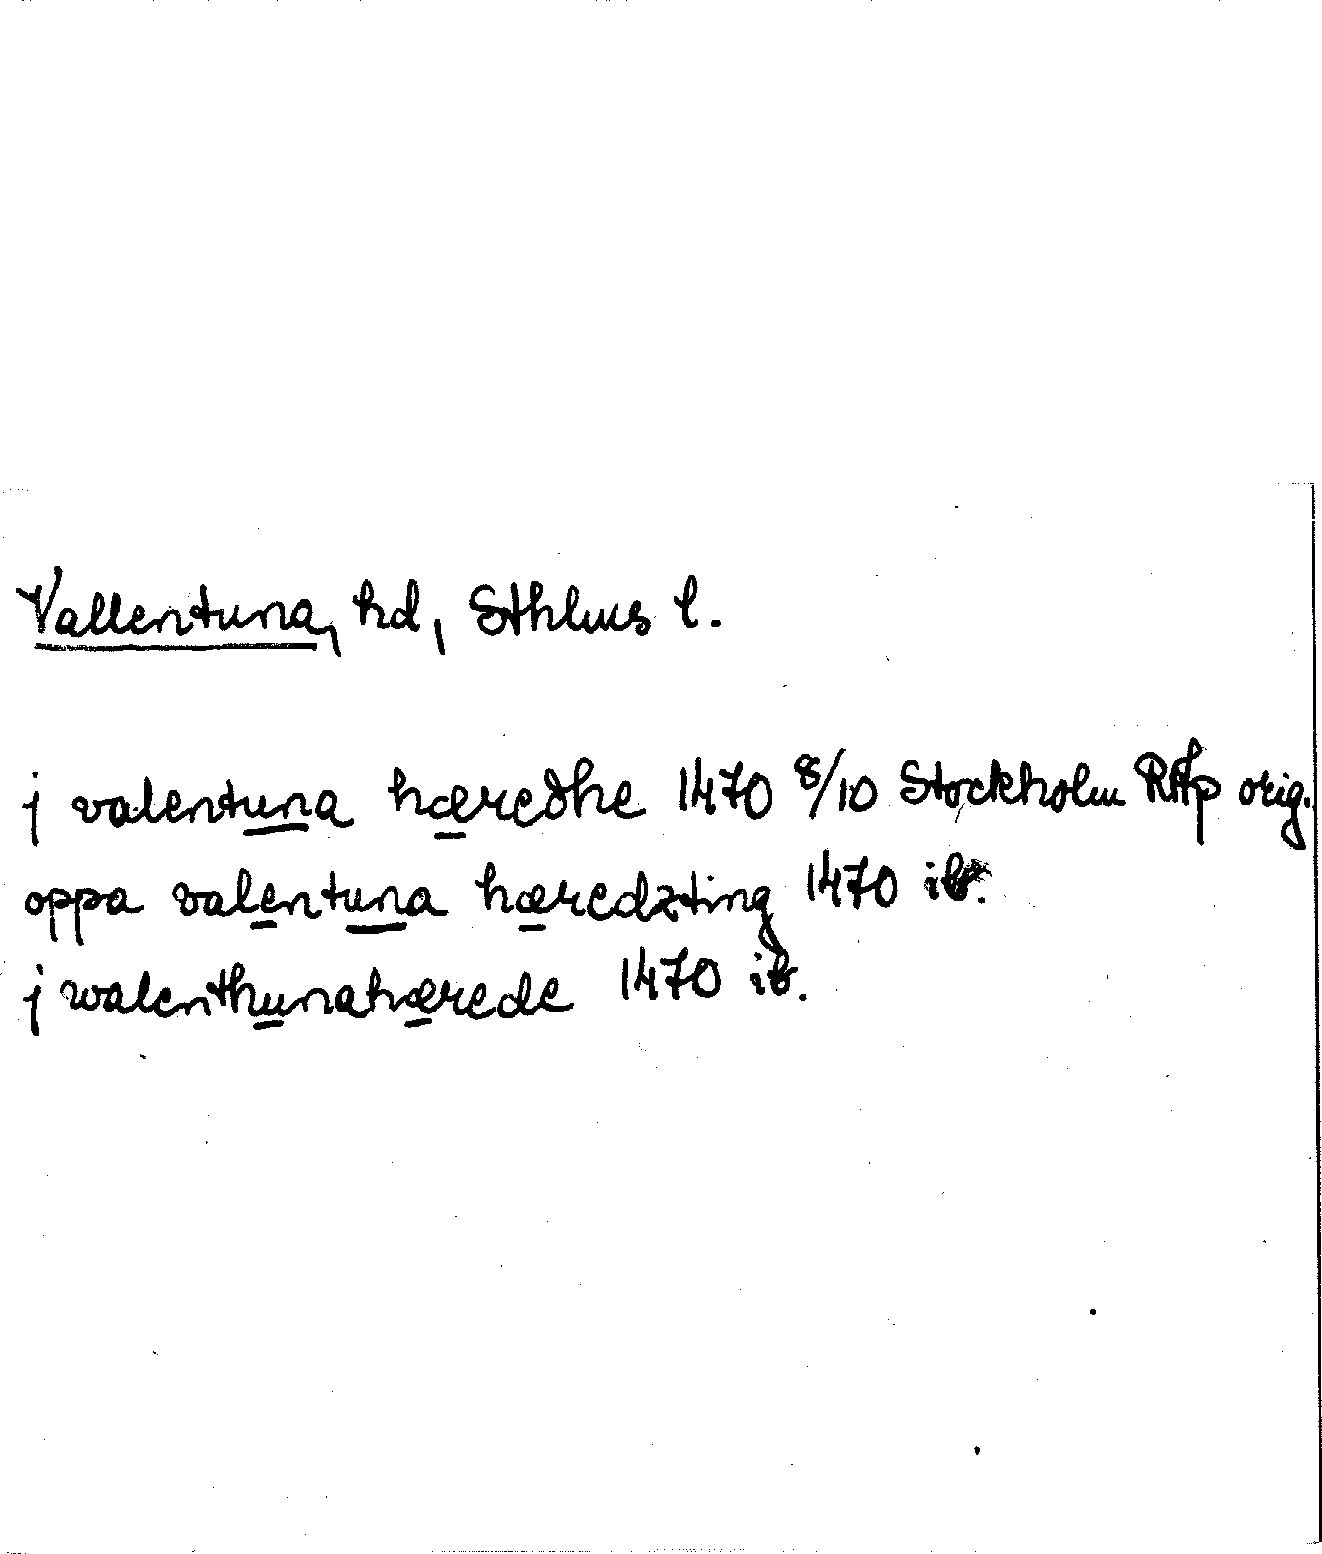 Vallentuna, hd, Sthlms l.
j valentuna hæredhe 1470 8/10 Stockholm RAp orig.
oppa valentuna hæredzting 1470 ib.
j walenthunahærede 1470 ib.